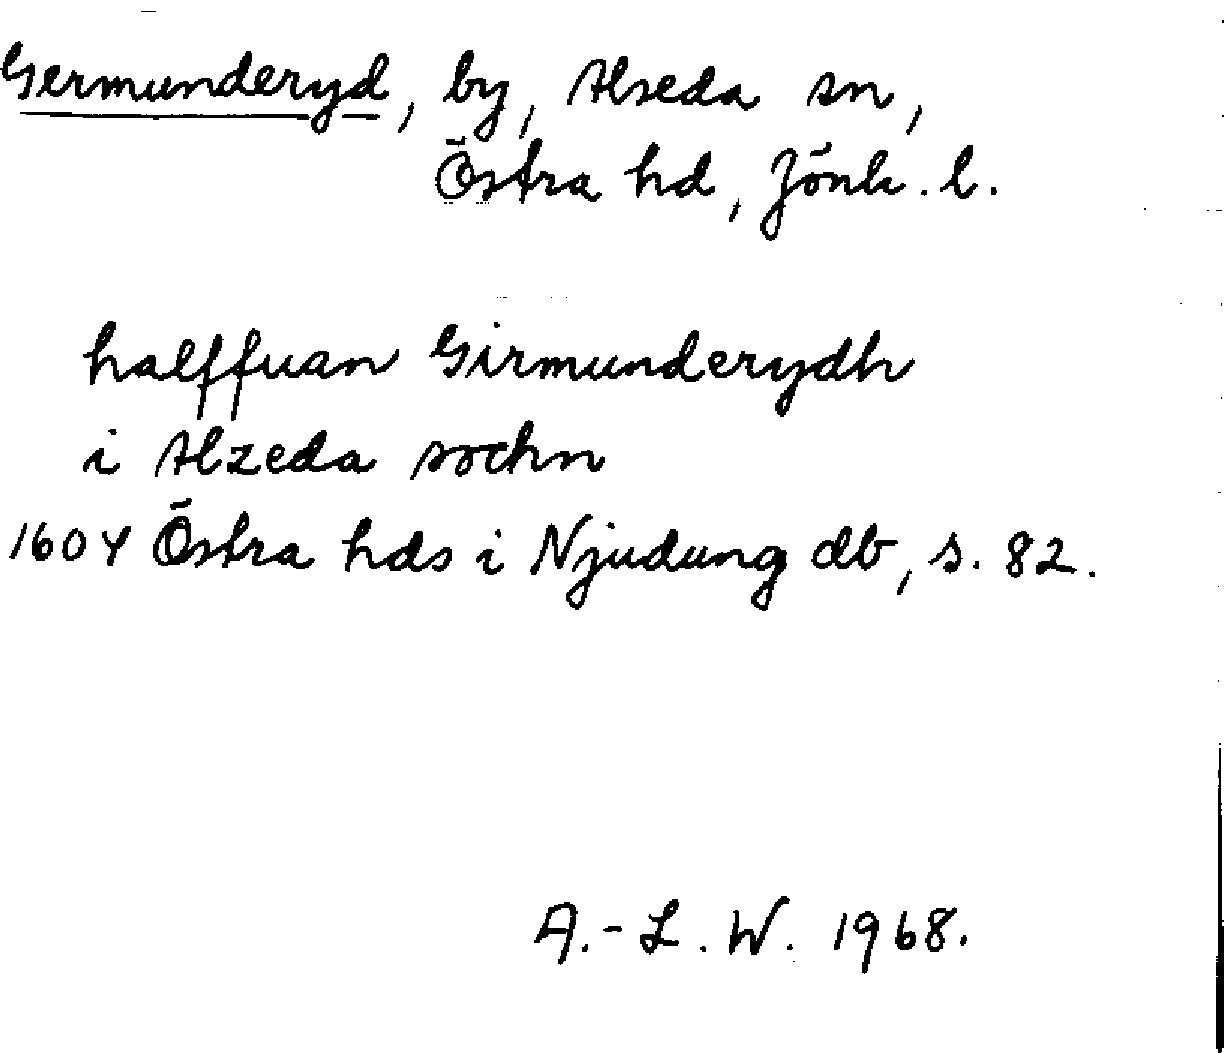 Germunderyd, by, Alseda sn,
Östra hd, Jönk. l.
halffuan Girmunderydh
i Alzeda sochn
1604 Östra hds i Njudung db, s. 82.
A.-L. W. 1968.